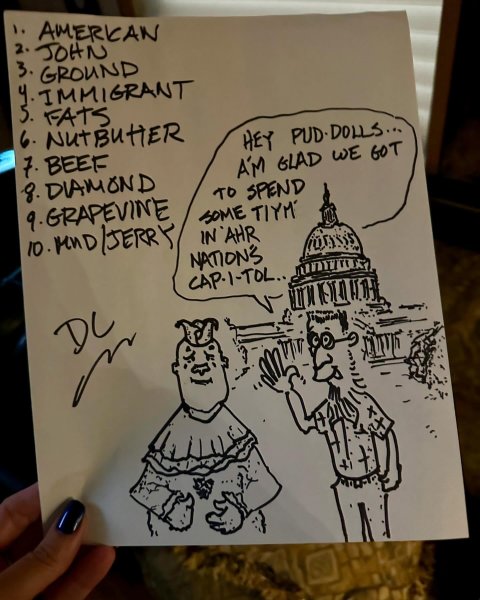 1. AMERICAN
2. JOHN
3. GROUND
4. IMMIGRANT
5. FATS
6. NUTBUTTER
7. BEEF
8. DIAMOND
9. GRAPEVINE
10. MUD/JERRY
HEY PUD-DOLLS...
A'M GLAD WE GOT
TO SPEND
SOME TIYM'
IN 'AHR
NATION'S
CAP-I-TOL..
DC